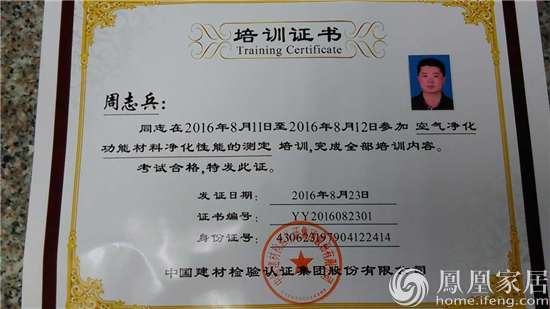 培训证书
Training Certificate
周志兵：
同志在2016年8月11日至2016年8月12日参加 空气净化
功能材料净化性能的测定 培训,完成全部培训内容。
考试合格,特发此证。
发证日期： 2016年8月23日
证书编号： YY2016082301
身份证号： 430623197904122414
中国建材检验认证集团股份有限公司
凤凰家居
home.ifeng.com